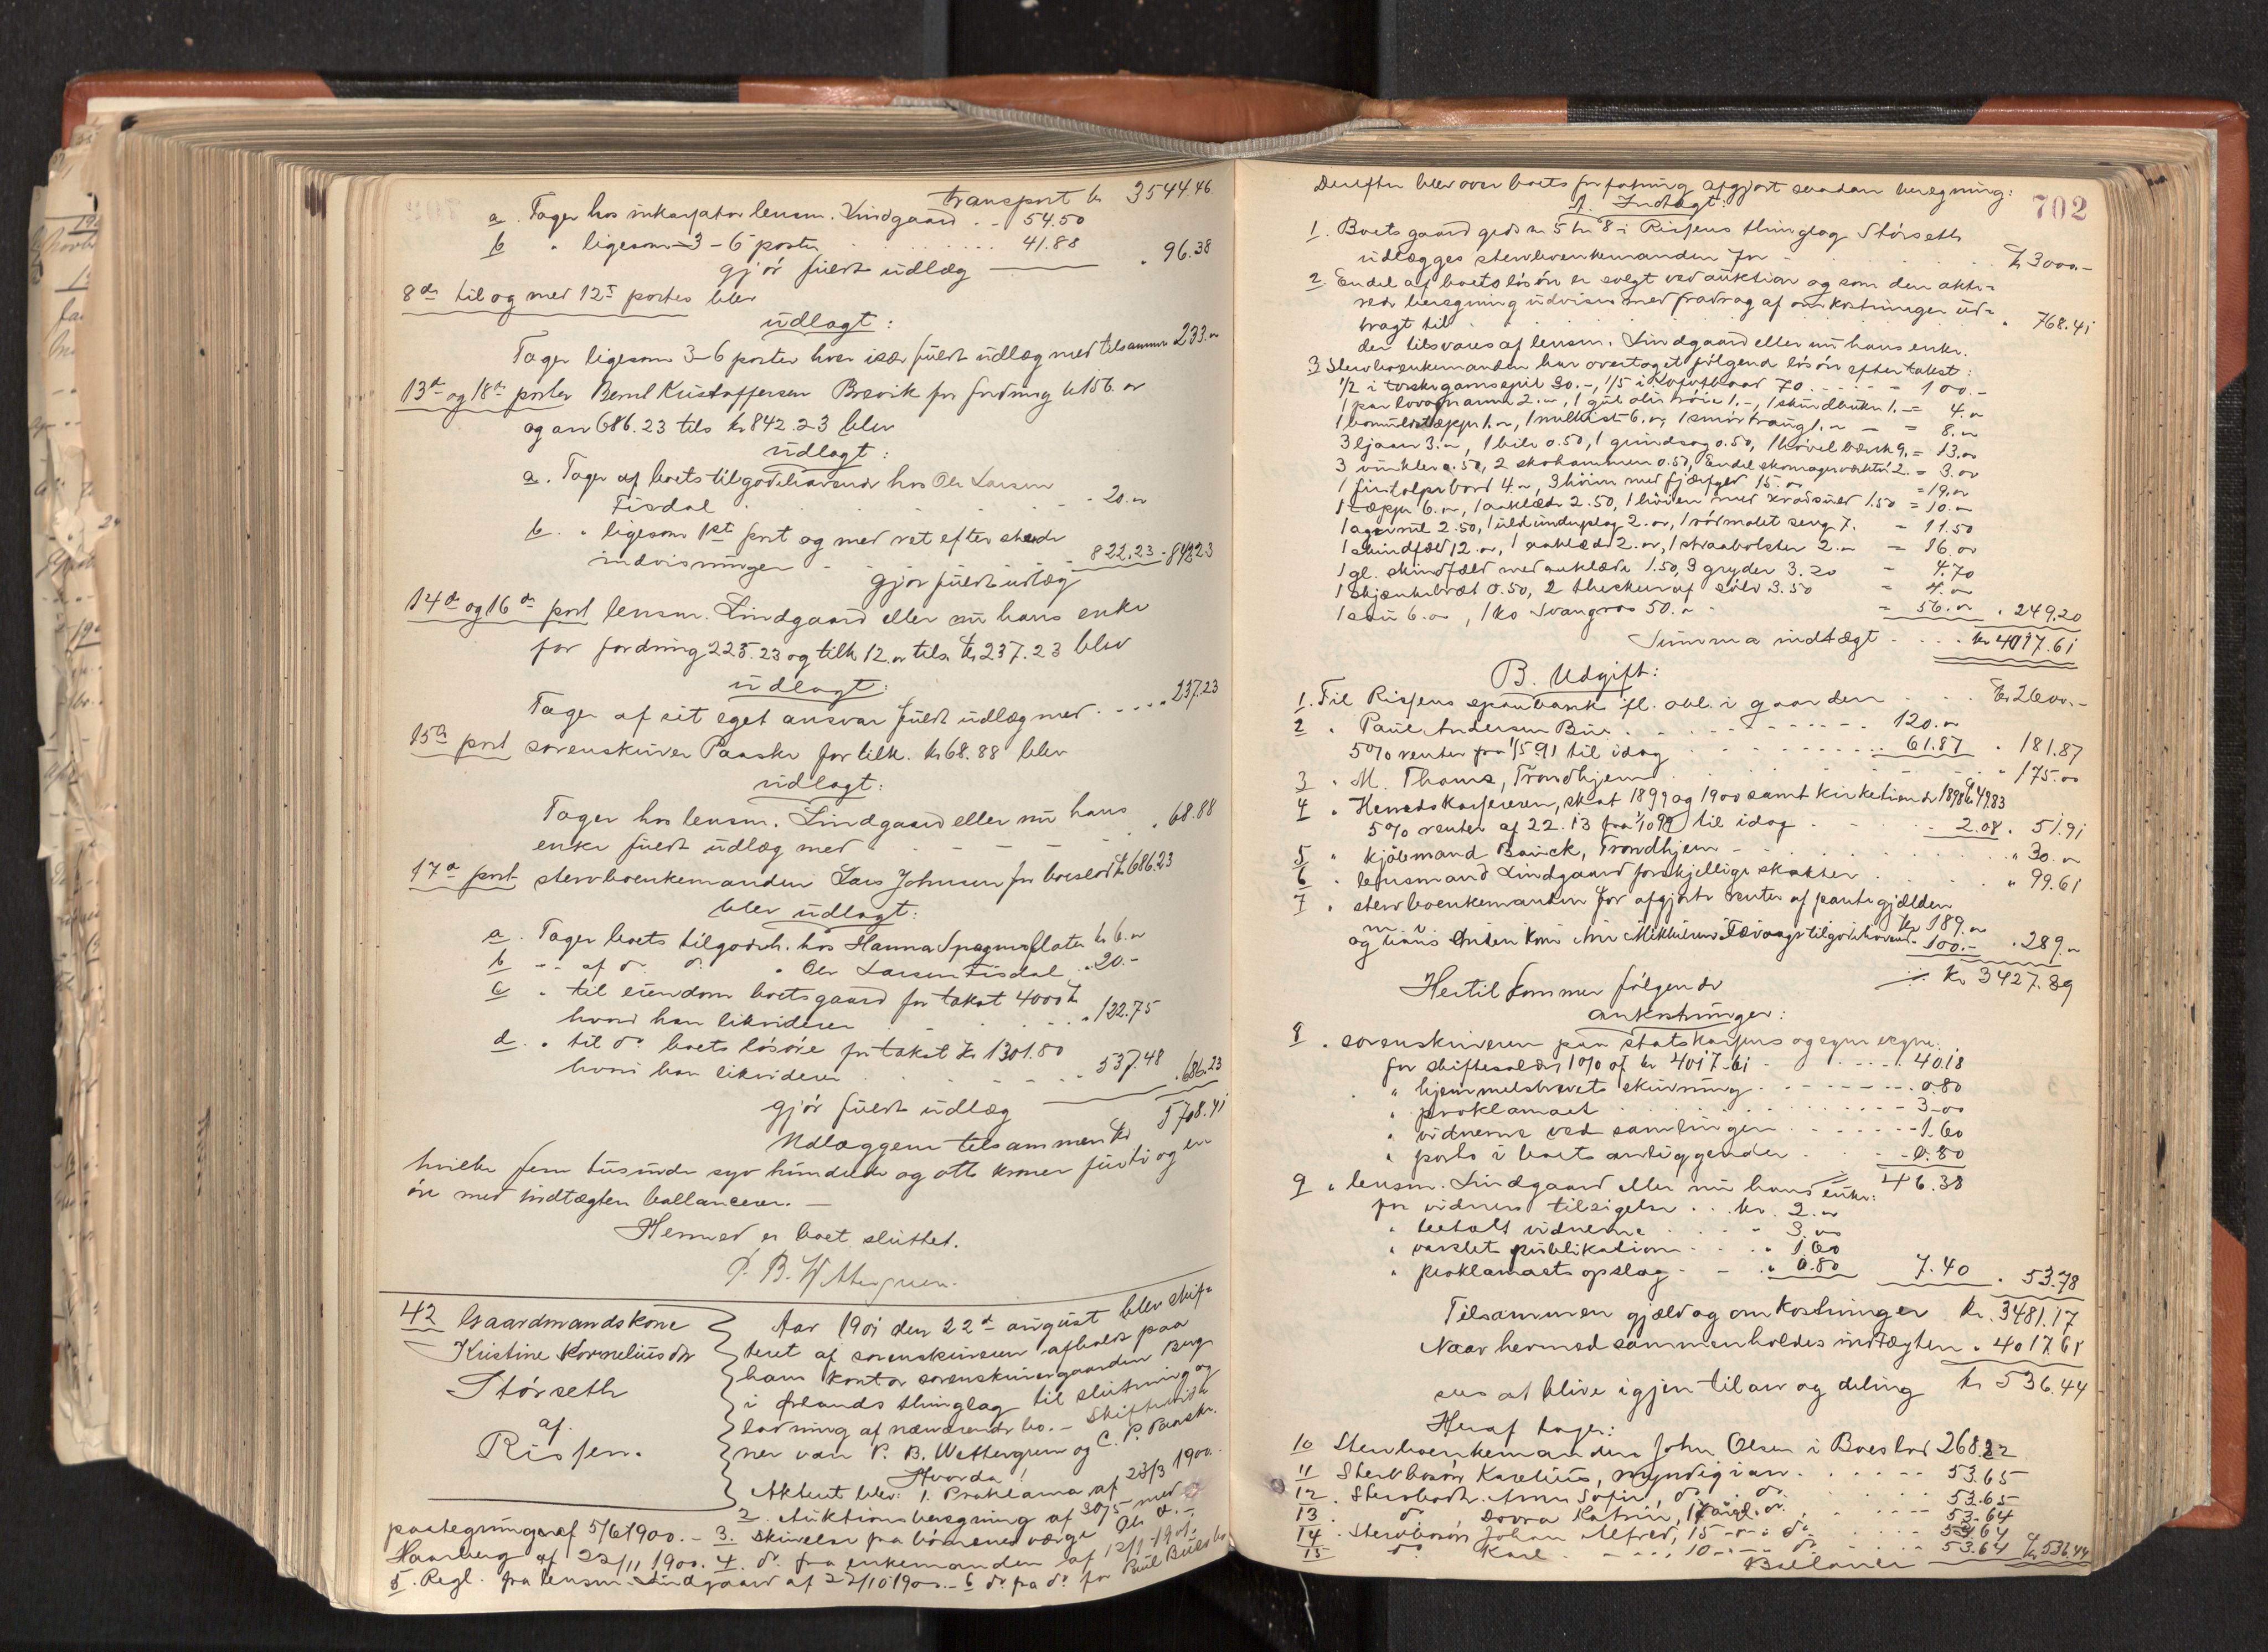 transport kr 3544.46
a. Tager hos inkassator lensm. Lindgaard .. 54.50
b " ligesom 3-6 poster ........ 41.88
gjör fuldt udlæg — " 96.38
8de til og med 12te postes blev
udlagt:
Tager ligesom 3-6 poster hver især fuldt udlæg med tilsammen 233.00
13de og 18de poster Bernt Kristoffersen Brevik for fordring kr 156.00
og arv 686.23 tils kr 842.23 blev
udlagt:
a. Tager af boets tilgodehavende hos Ole Larsen
Fisdal . . . . - 20.00
b. " ligesom 1ste post og med ret efter skeede
indvisninger - - 822.23 - 842.23
gjör fuldt udlæg
14de og 16de post lensm. Lindgaard eller nu hans enke
for fordring 225.23 og tilk 12.00 tils. kr 237.23 blev
udlagt:
Tager af sit eget ansvar fuldt udlæg med . . . . . 237.23
15de post sorenskriver Paaske for tilk. kr 68.88 blev
udlagt:
Tager hos lensm. Lindgaard eller nu hans
enke fuldt udlæg med - - - - . 68.88
17de post stervboenkemanden Lars Johnsen for boeslod kr 686.23
blev udlagt:
a. Tager boets tilgodeh. hos Hanna kr 6.00
b -- af do do " Ole Larsen Fisdal . 20.-
c " til eiendom boets gaard for takst 4000 kr
hvori han likviderer . . . . . . 122.75
d. " til do boets lösöre for takst kr 1301.80
hvori han likviderer . . . . 537.48 . 686.23
gjör fuldt udlæg
Udlæggene tilsammen kr 5708.41
hvilke fem tusinde syv hundrede og otte kroner fürti og en
öre med indtægten ballancerer. —
Hermed er boet sluttet.
P. B. Wettergreen.
42 Gaardmandskone
Kristine Korneliusdr
Störseth
af
Rissen.
Aar 1901 den 22de august blev skif-
teret af sorenskriveren afholdt paa
hans kontor sorenskrivergaarden Berg
i Ørlands thinglag til slutning og
lovning af nærværende bo. - Skiftevid-
ner var P. B. Wettergreen og C. P. Paaske.
Hvorda!
Akteret blev: 1. Proklama af 23/3 1900.
2. Auktionsberegning af 30/5 med
paategninger af 5/6 1900. - 3. Skrivelse fra börnenes værge Ole O. -
Haarberg af 22/11 1900. 4. do. fra enkemanden af 12/1-1901.
5. Regl. fra lensm. Lindgaard af 22/10 1900. - 6 do. fra do for
702
Derefter blev over boets forfatning afgjort saadan beregning:
A. Indtægt:
1. Boets gaard gards no 5 br 8 i Rissens thinglag Störseth
udlægges stervboenkemanden for - . . . . kr 3000.-
2. Endel af boets lösöre er solgt ved auktion og som den akte-
rede beregning udviser med fradrag af omkostninger ud-
bragt til . . . . . " 768.41
der tilsvares af lensm. Lindgaard eller nu hans enke.
3 Stervboenkemanden har overtaget fölgende lösöre efter takst:
1/2 i torskegarnsspil 30.-, 1/5 i 70 . . . . - 100.-
1 par 2.00, 1 gul 1.-, 1 1.- = 4.00
1 1.00, 1 6.00, 1 smörtraug 1.00 — = 8.00
3 ljaaer 3.00, 1 bile 0.50, 1 grindsag 0.50, 1 hövelbænk 9. = 13.00
3 vinkler 0.50, 2 skohammere 0.50, Endel skomagerværktöi 2. = 3.00
1 firstolpebord 4.00, 3 15.00 = 19.00
1 tæppe 6.00, 1 aaklæde 2.50, 1 1.50 = 10.00
1 2.50, 1 2.00, 1 rödmalet seng 7. = 11.50
1 skindfæld 12.00, 1 aaklæde 2.00, 1 straabolster 2.00 = 16.00
1 gl. skindfæld med aaklæde 1.50, 3 gryder 3.20 = 4.70
1 0.50, 2 theskeer af sölv 3.50 = 4.00
1 sau 6.00, 1 ko Svangros 50.00 - = 56.00 . 249.20
Summa indtægt . . . . kr 4017.61
B. Udgift:
1. Til Rissens sparebank fl. obl. i gaarden . . . kr 2600.-
2 " Paul Andersen Bue . . . . . . 120.00
5% renter fra 1/5 91 til idag . . . . . 61.87 . 181.87
3 " M. Thams, Trondhjem . . . . . . " 175.00
4 " Herredskassereren, skat 1899 og 1900 samt kirketiende 1898 kr 49.83
5% renter af 22.13 fra til idag . . . . 2.08 . 51.91
5 " kjöbmand Bauck, Trondhjem - . . . . " 30.00
6 " lensmand Lindgaard forskjellige skatter . . . " 99.61
7 " stervboenkemanden for afgjorte renter af pantegjælden
kr 189.00
og hans tilgodehavende - 100.- . 289.00
kr 3427.39
Hertil kommer fölgende
omkostninger:
8 " sorenskriveren paa statskassens og egne vegne:
for skiftesalær 1% af kr 4017.61 - . . . . 40.18
" hjemmelsbrevets skrivning . . . . . . 0.80
" proklamaet . . . . . . 3.00
" vidnerne ved samlingen . . . . . 1.60
" porto i boets anliggender . . . - 0.80
46.38
9 " lensm. Lindgaard eller nu hans enke:
for vidners tilsigelse . . . kr. 2.00
" betalt vidnerne . . " 3.00
" varslets publikation . . . " 1.60
" proklamaets opslag - - " 0.80 7.40 . 53.78
Tilsammen gjæld og omkostninger kr. 3481.17
Naar hermed sammenholdes indtægten " 4017.61
sees at blive igjen til arv og deling kr 536.44
Heraf tager:
10 Stervboenkemanden John Olsen i Boeslod 268.22
11 Stervbosön Karelius, myndig i arv . . . . . 53.65
12. Stervbodtr. Anne Sofie, do . do . . . 53.65
13. do. Dorra Katrine, . . . 53.64
14. Stervbosön Johan Alfred, 15 - - do . . . 53.64
15 do. Karl . - . . . 10 - - do - . 53.64 kr 536.44
Ballancer